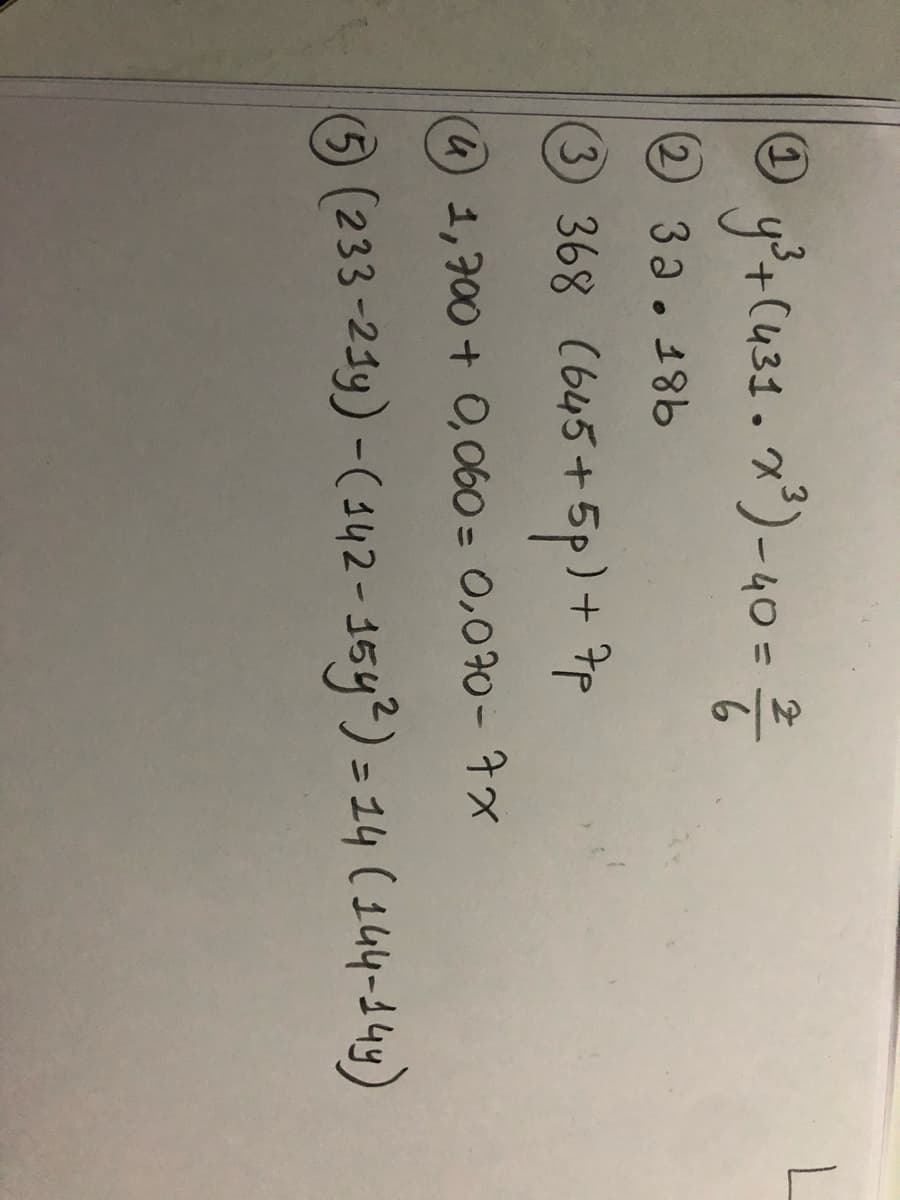 ① y³+(431 • x³)-40 = 2/6
② 3a • 18b
③ 368 (645+5p)+7p
④ 1,700 + 0,060 = 0,070 - 7x
⑤ (233-21y)-(142-15y²)=14(144-14y)